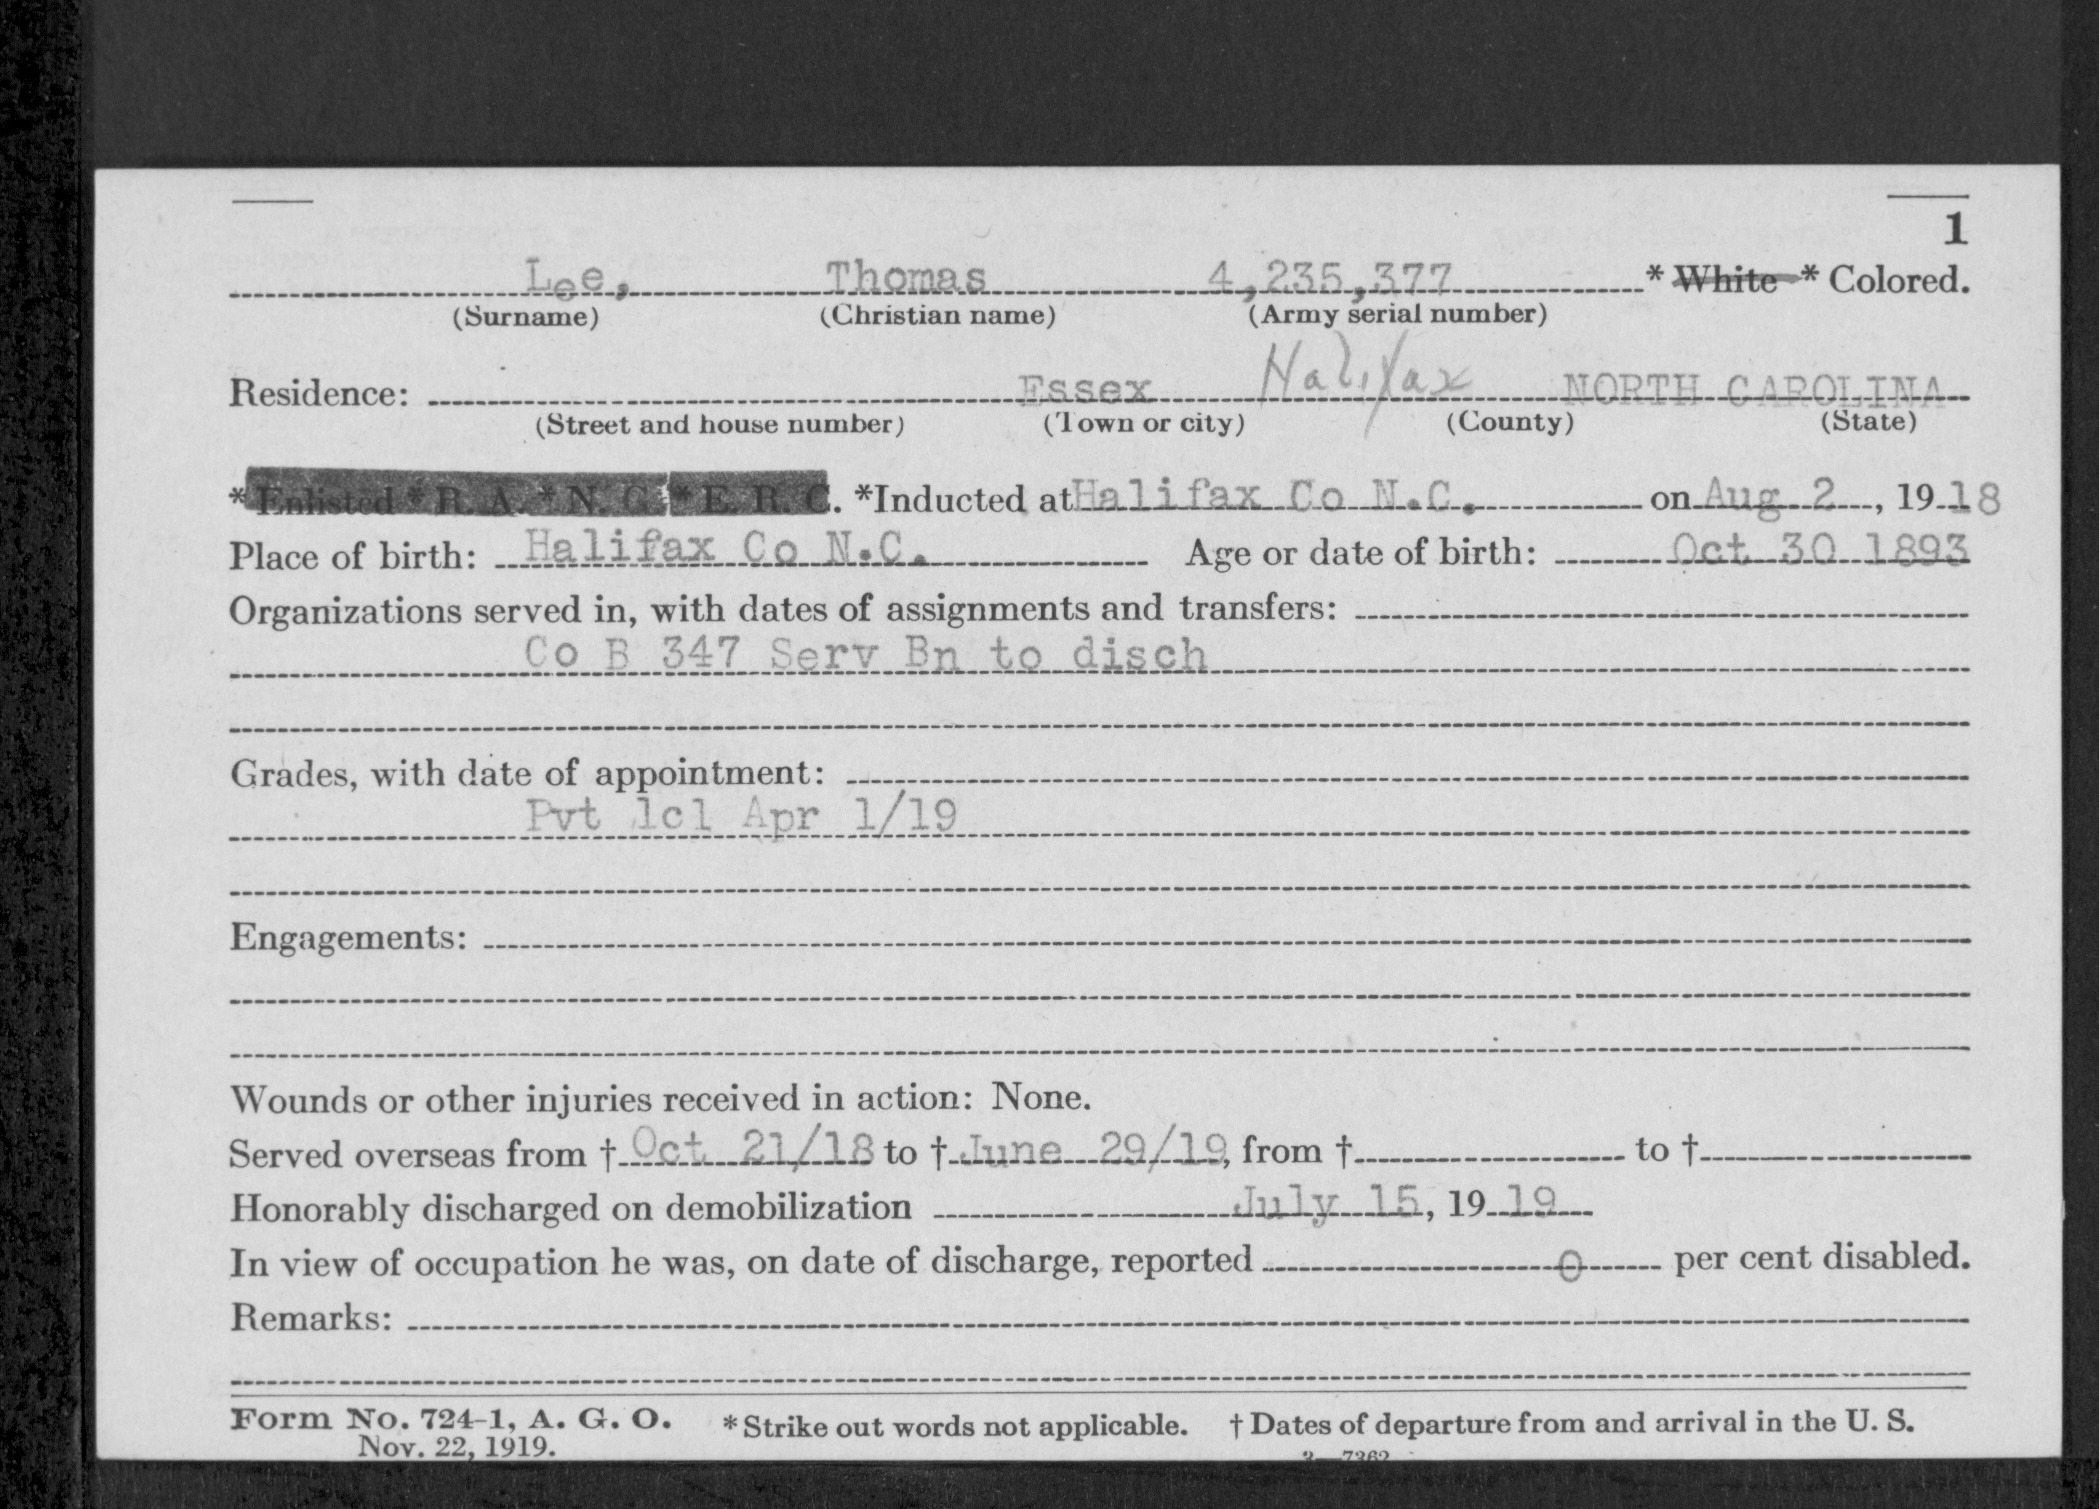 1
Lee, Thomas 4,235,377 * White * Colored.
(Surname) (Christian name) (Army serial number)
Residence: Essex Halifax NORTH CAROLINA
(Street and house number) (Town or city) (County) (State)
* Enlisted * R. A. * N. G. * E. R. C. *Inducted at Halifax Co N.C. on Aug 2, 1918
Place of birth: Halifax Co N.C. Age or date of birth: Oct 30 1893
Organizations served in, with dates of assignments and transfers:
Co B 347 Serv Bn to disch
Grades, with date of appointment:
Pvt 1cl Apr 1/19
Engagements:
Wounds or other injuries received in action: None.
Served overseas from † Oct 21/18 to † June 29/19, from † to †
Honorably discharged on demobilization July 15, 1919
In view of occupation he was, on date of discharge, reported 0 per cent disabled.
Remarks:
Form No. 724-1, A. G. O. * Strike out words not applicable. † Dates of departure from and arrival in the U. S.
Nov. 22, 1919. 3—7362